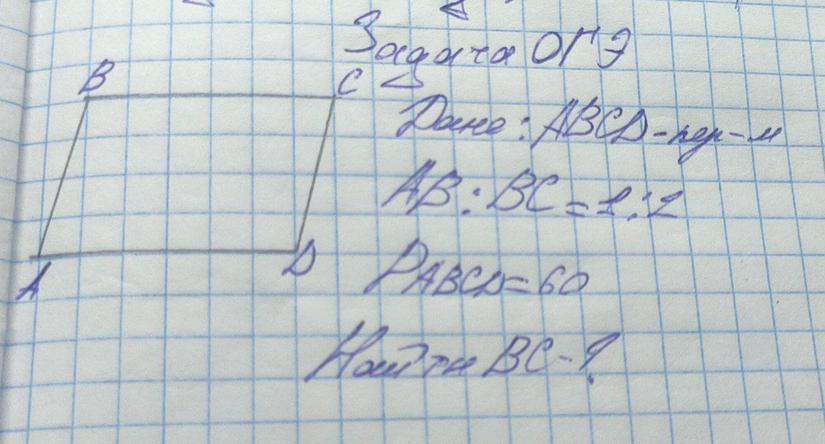 Задача ОГЭ
B
C
Дано: ABCD-пар-м
AB:BC=1:2
A
D
PABCD=60
Найти BC-?